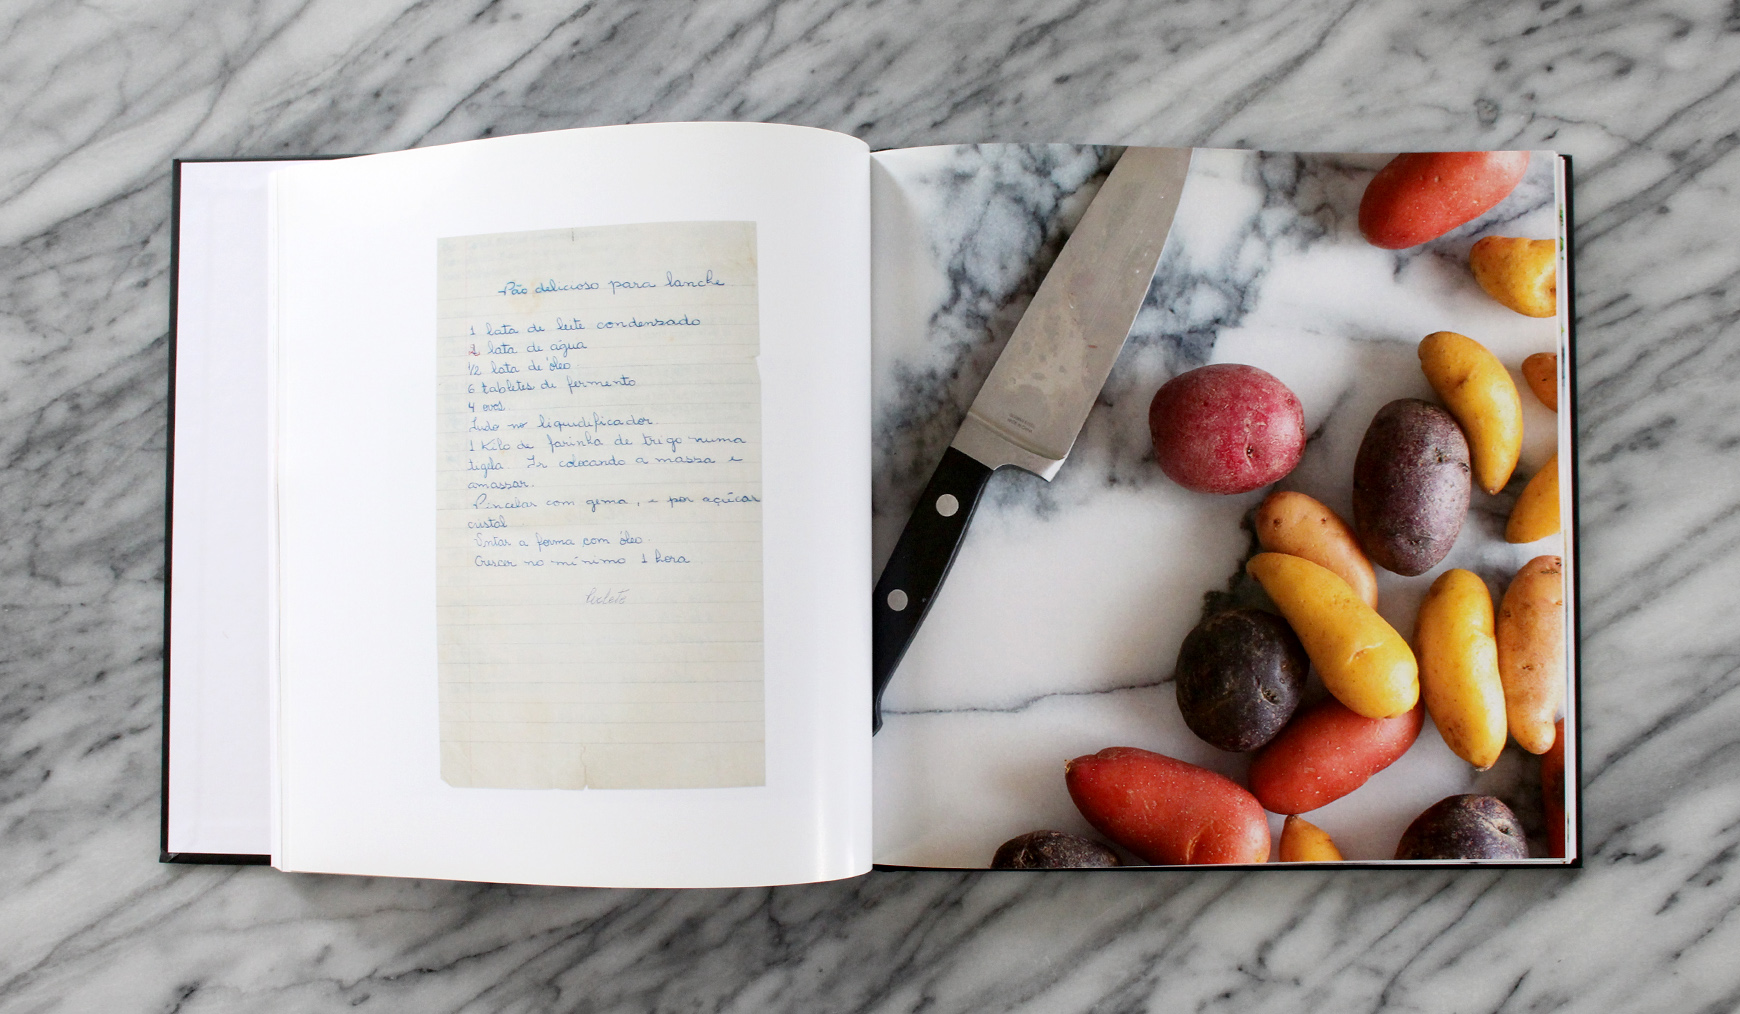 Pão delicioso para lanche
1 lata de leite condensado
2 lata de água
1/2 lata de óleo
6 tabletes de fermento
4 ovos
Tudo no liquidificador.
1 Kilo de farinha de trigo numa
tigela Ir colocando a massa e
amassar.
Pincelar com gema, e por açúcar
cristal
Untar a forma com óleo.
Crescer no mínimo 1 hora